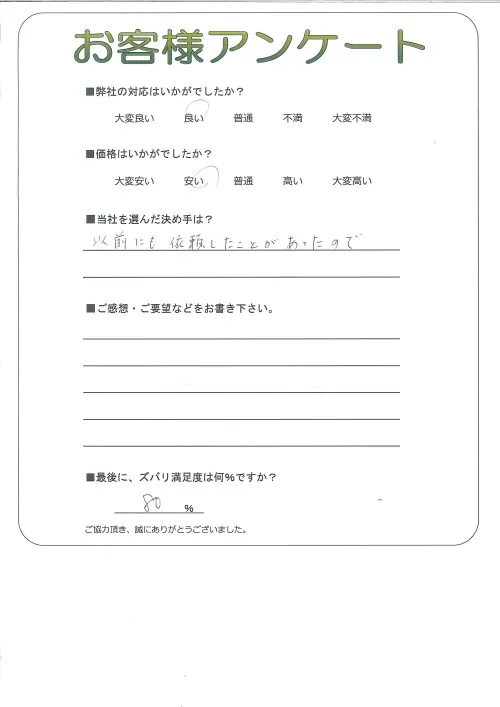 お客様アンケート
■弊社の対応はいかがでしたか？
大変良い 良い 普通 不満 大変不満
■価格はいかがでしたか？
大変安い 安い 普通 高い 大変高い
■当社を選んだ決め手は？
以前にも依頼したことがあったので
■ご感想・ご要望などをお書き下さい。
■最後に、ズバリ満足度は何%ですか？
80 %
ご協力頂き、誠にありがとうございました。